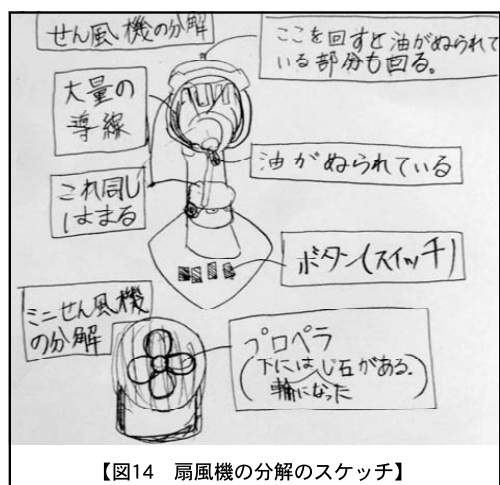 せん風機の分解
ここを回すと油がぬられて
いる部分も回る。
大量の
導線
油がぬられている
これ同し
はまる
ボタン(スイッチ)
ミニせん風機
の分解
プロペラ
(下にはじ石がある.
輪になった)
【図14 扇風機の分解のスケッチ】